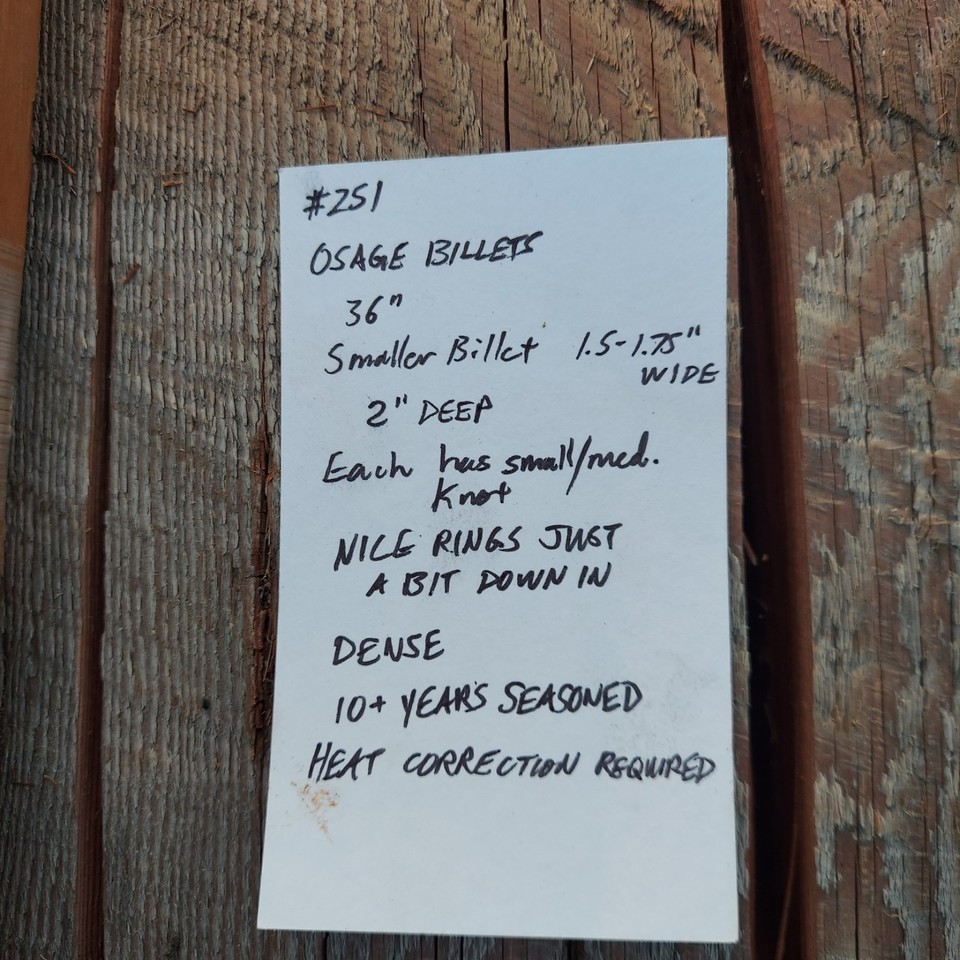 #251
OSAGE BILLETS
36"
Smaller Billet 1.5-1.75"
WIDE
2" DEEP
Each has small/med.
Knot
NICE RINGS JUST
A BIT DOWN IN
DENSE
10+ YEARS SEASONED
HEAT CORRECTION REQUIRED